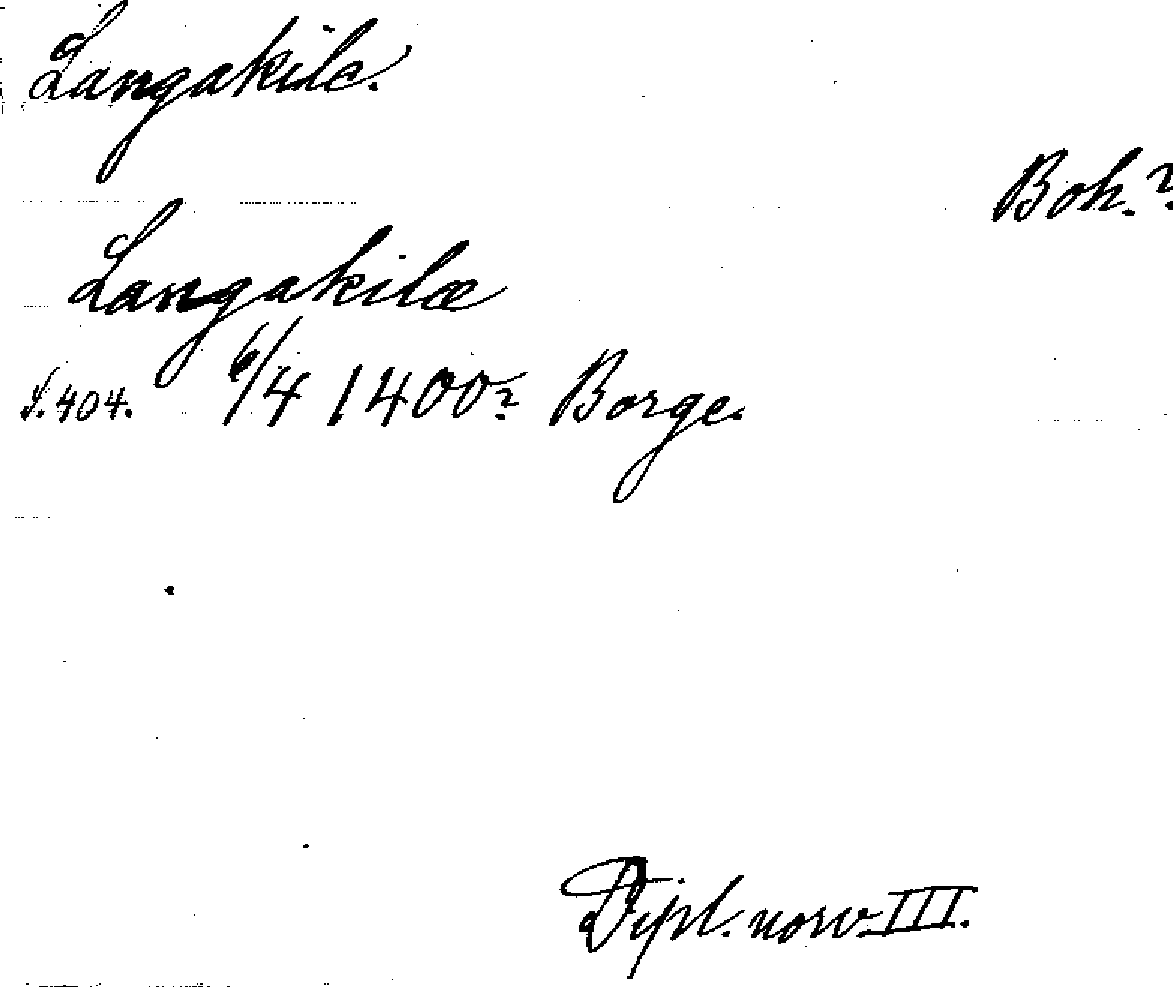 Langakile.
Boh.?
Langakilæ
S. 404. 6/4 1400? Borge.
Dipl. norv. III.